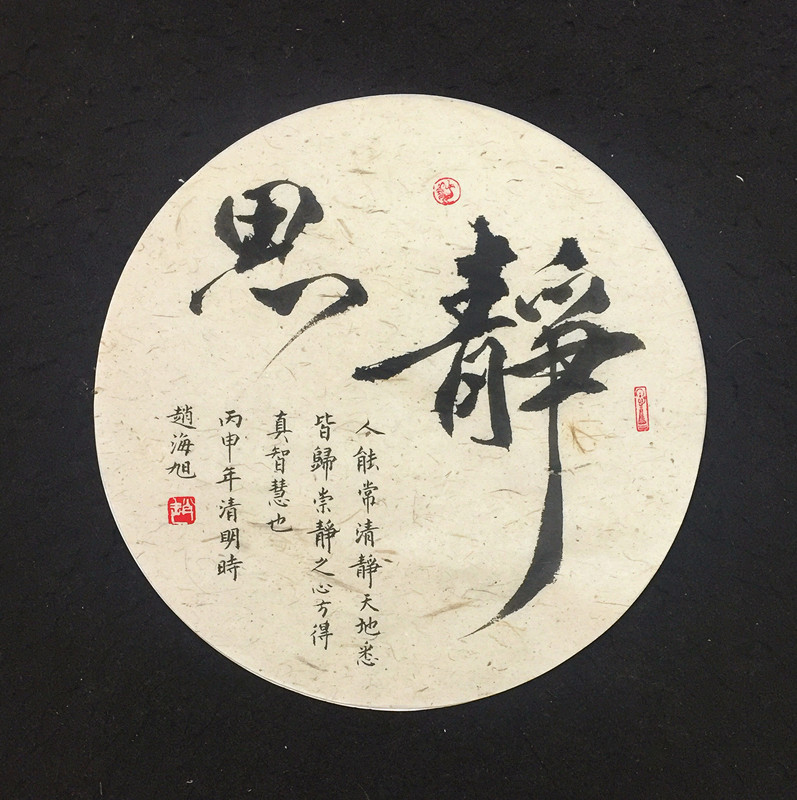 靜思
人能常清靜天地悉
皆歸崇靜之心方得
真智慧也
丙申年清明時
趙海旭